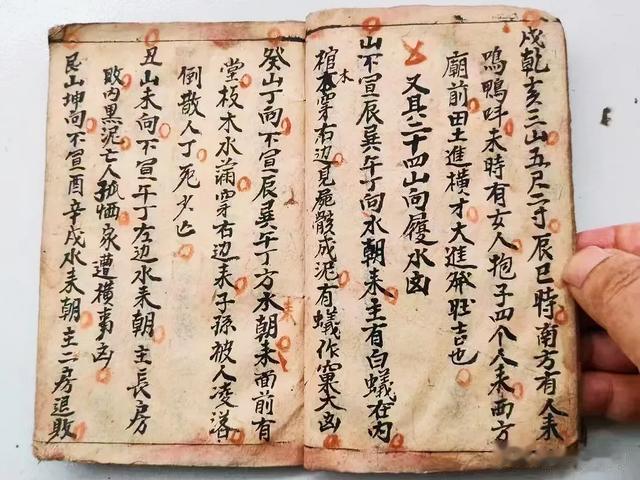 戌乾亥三山五尺二寸辰巳時南方有人来
鳴鴨呌未時有女人抱子四个人来西方
廟前田土進横才大進發旺吉也
又具二十四山向履水凶
山不宣辰巽午丁向水朝来主有白蟻在内
棺木穿右边見屍骸成泥有蟻作窠大凶
癸山丁向不宣辰巽午丁方水朝来面前有
堂板木水滿穿右边来子孫被人凌落
倒散人丁死少亡
丑山未向不宣午丁左边水来朝主長房
敗内黒泥亡人孤恓家遭横禍凶
艮山坤向不宣酉辛戌水来朝主二房退敗